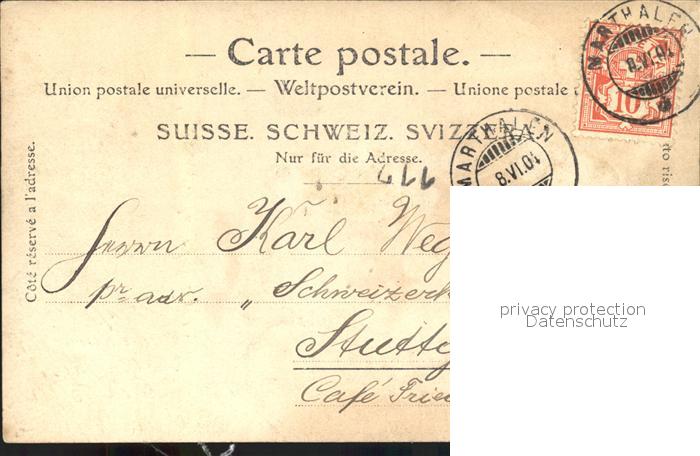 — Carte postale. —
Union postale universelle. — Weltpostverein. — Unione postale
SUISSE. SCHWEIZ. SVIZZERA.
Nur für die Adresse.
Côté réservé a l'adresse.
MARTHALEN
8.VI.04
10
MARTHALEN
8.VI.04
117
Herrn Karl Weg
pr. adr. „Schweizer
Stuttg
Café Frie
privacy protection
Datenschutz